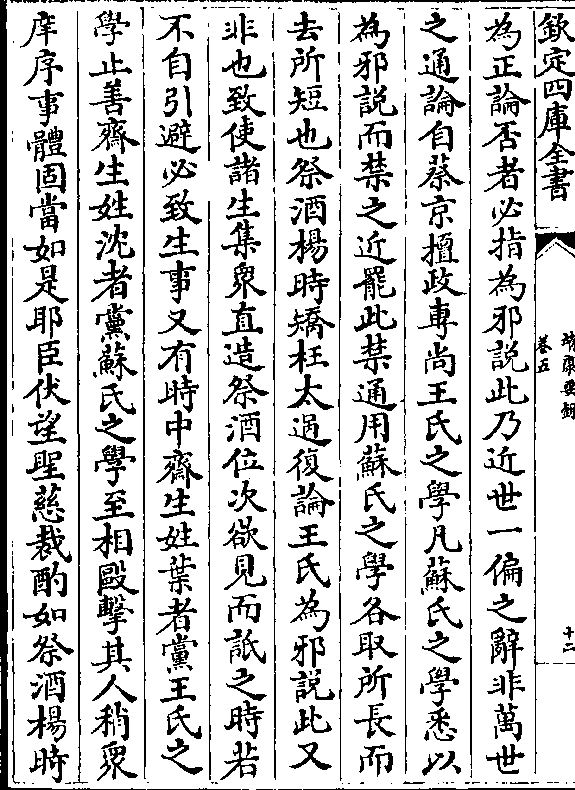 欽定四庫全書
靖康要錄
卷五
十二
為正論否者必指為邪說此乃近世一偏之辭非萬世
之通論自蔡京擅政專尚王氏之學凡蘇氏之學悉以
為邪說而禁之近罷此禁通用蘇氏之學各取所長而
去所短也祭酒楊時矯枉太過復論王氏為邪說此又
非也致使諸生集衆直造祭酒位次欲見而詆之時若
不自引避必致生事又有時中齋生姓葉者黨王氏之
學止善齋生姓沈者黨蘇氏之學至相毆擊其人稍衆
庠序事體固當如是耶臣伏望聖慈裁酌如祭酒楊時